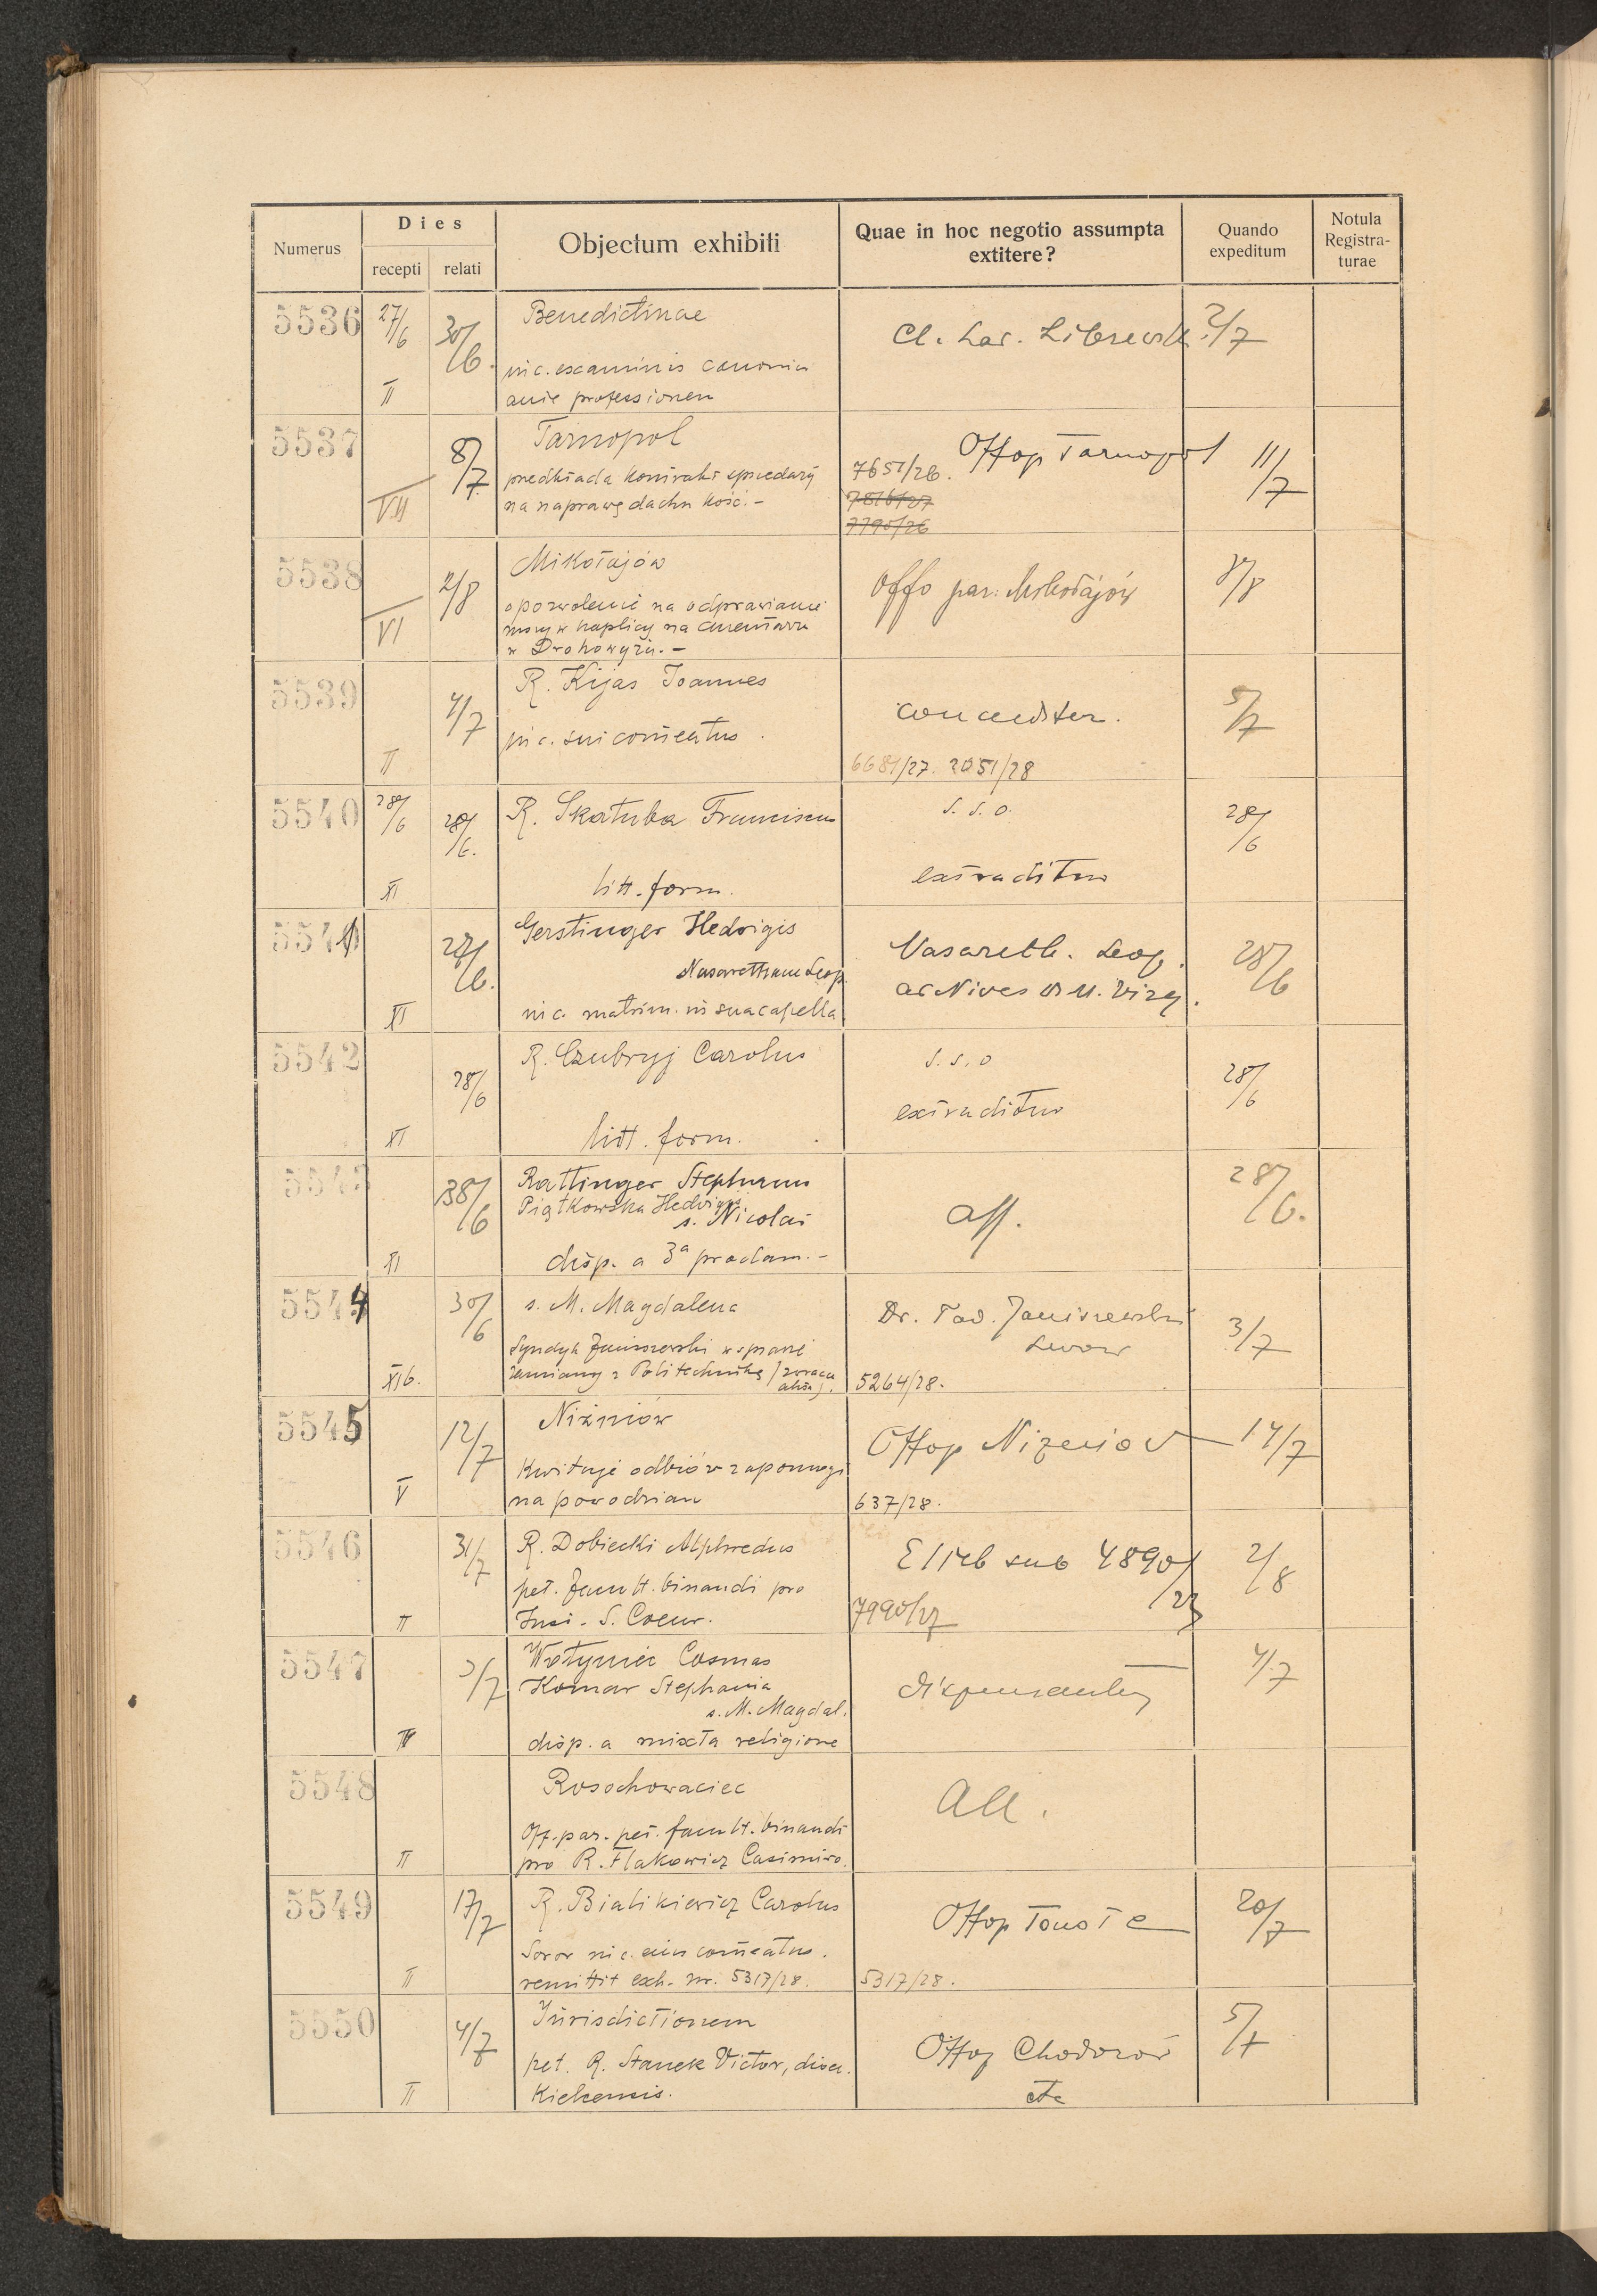 Numerus
Dies
recepti relati
Objectum exhibiti
Quae in hoc negotio assumpta
extitere?
Quando
expeditum
Notula
Registra-
turae
5536 27/6 30/6. Benedictinae
Cl. Lar. 2/7
inc. examinis canonici
II
professionem
5537 8/7 Tarnopol
Offop Tarnopol 11/7
przedkłada kontrakt sprzedaży
7651/26.
VII
na naprawę dachu kośc. -
7816/27
7790/26
5538 2/8 Mikołajów
Offo par. Mikołajów 8/8
VI
o pozwolenie na odprawianie
mszy w kaplicy na cmentarzu
w Drohowyżu. -
5539 4/7 R. Kijas Joannes
conceditur. 5/7
II
sui comeatus.
6681/27. 2051/28
5540 28/6 28/6. R. Skałuba Franciscus
s. s. o. 28/6
XI
litt. form.
extraditur
5541 28/6. Gerstinger Hedvigis
Nasareth. Leop.
28/6
XI
matrim. in sua capella
ad Nives B. M. Virg.
5542 28/6 R. Czubryj Carolus
s. s. o 28/6
extraditur
XI
litt. form.
5543 28/6 Rattinger Stephanus
Piątkowska Hedvigis
s. Nicolai
aff. 28/6.
XI
disp. a 3ª proclam. -
5544 30/6 s. M. Magdalena
Dr. Tad. Janiszewski
Lwów 3/7
Syndyk Janiszewski w sprawie
XIb.
zamiany z Politechniką /zwraca
akta/.
5264/28.
5545 12/7 Niżniów
Offop Nizeniov 14/7
V
Kwituje odbiór zapomogi
na powodzian
637/28.
5546 31/7 R. Dobiecki Alphredus
sub 4890/27 2/8
pet. facult. binandi pro
II
S. Coeur.
7990/27
5547 3/7 Wołyniec Cosmas
Komar Stephania
s. M. Magdal.
4/7
IV
disp. a mixta religione
5548 Rosochowaciec
All.
Off. par. pet. facult. binandi
II
pro R. Flakowicz Casimiro.
5549 17/7 R. Bialikiewicz Carolus
Offop Touste 20/7
Soror comeatus.
II
remittit exh. nr. 5317/28.
5317/28.
5550 4/7 Jurisdictionem
Offop Chodorów
etc 5/7
pet. R. Stanek Victor, dioec.
II
Kielcensis.